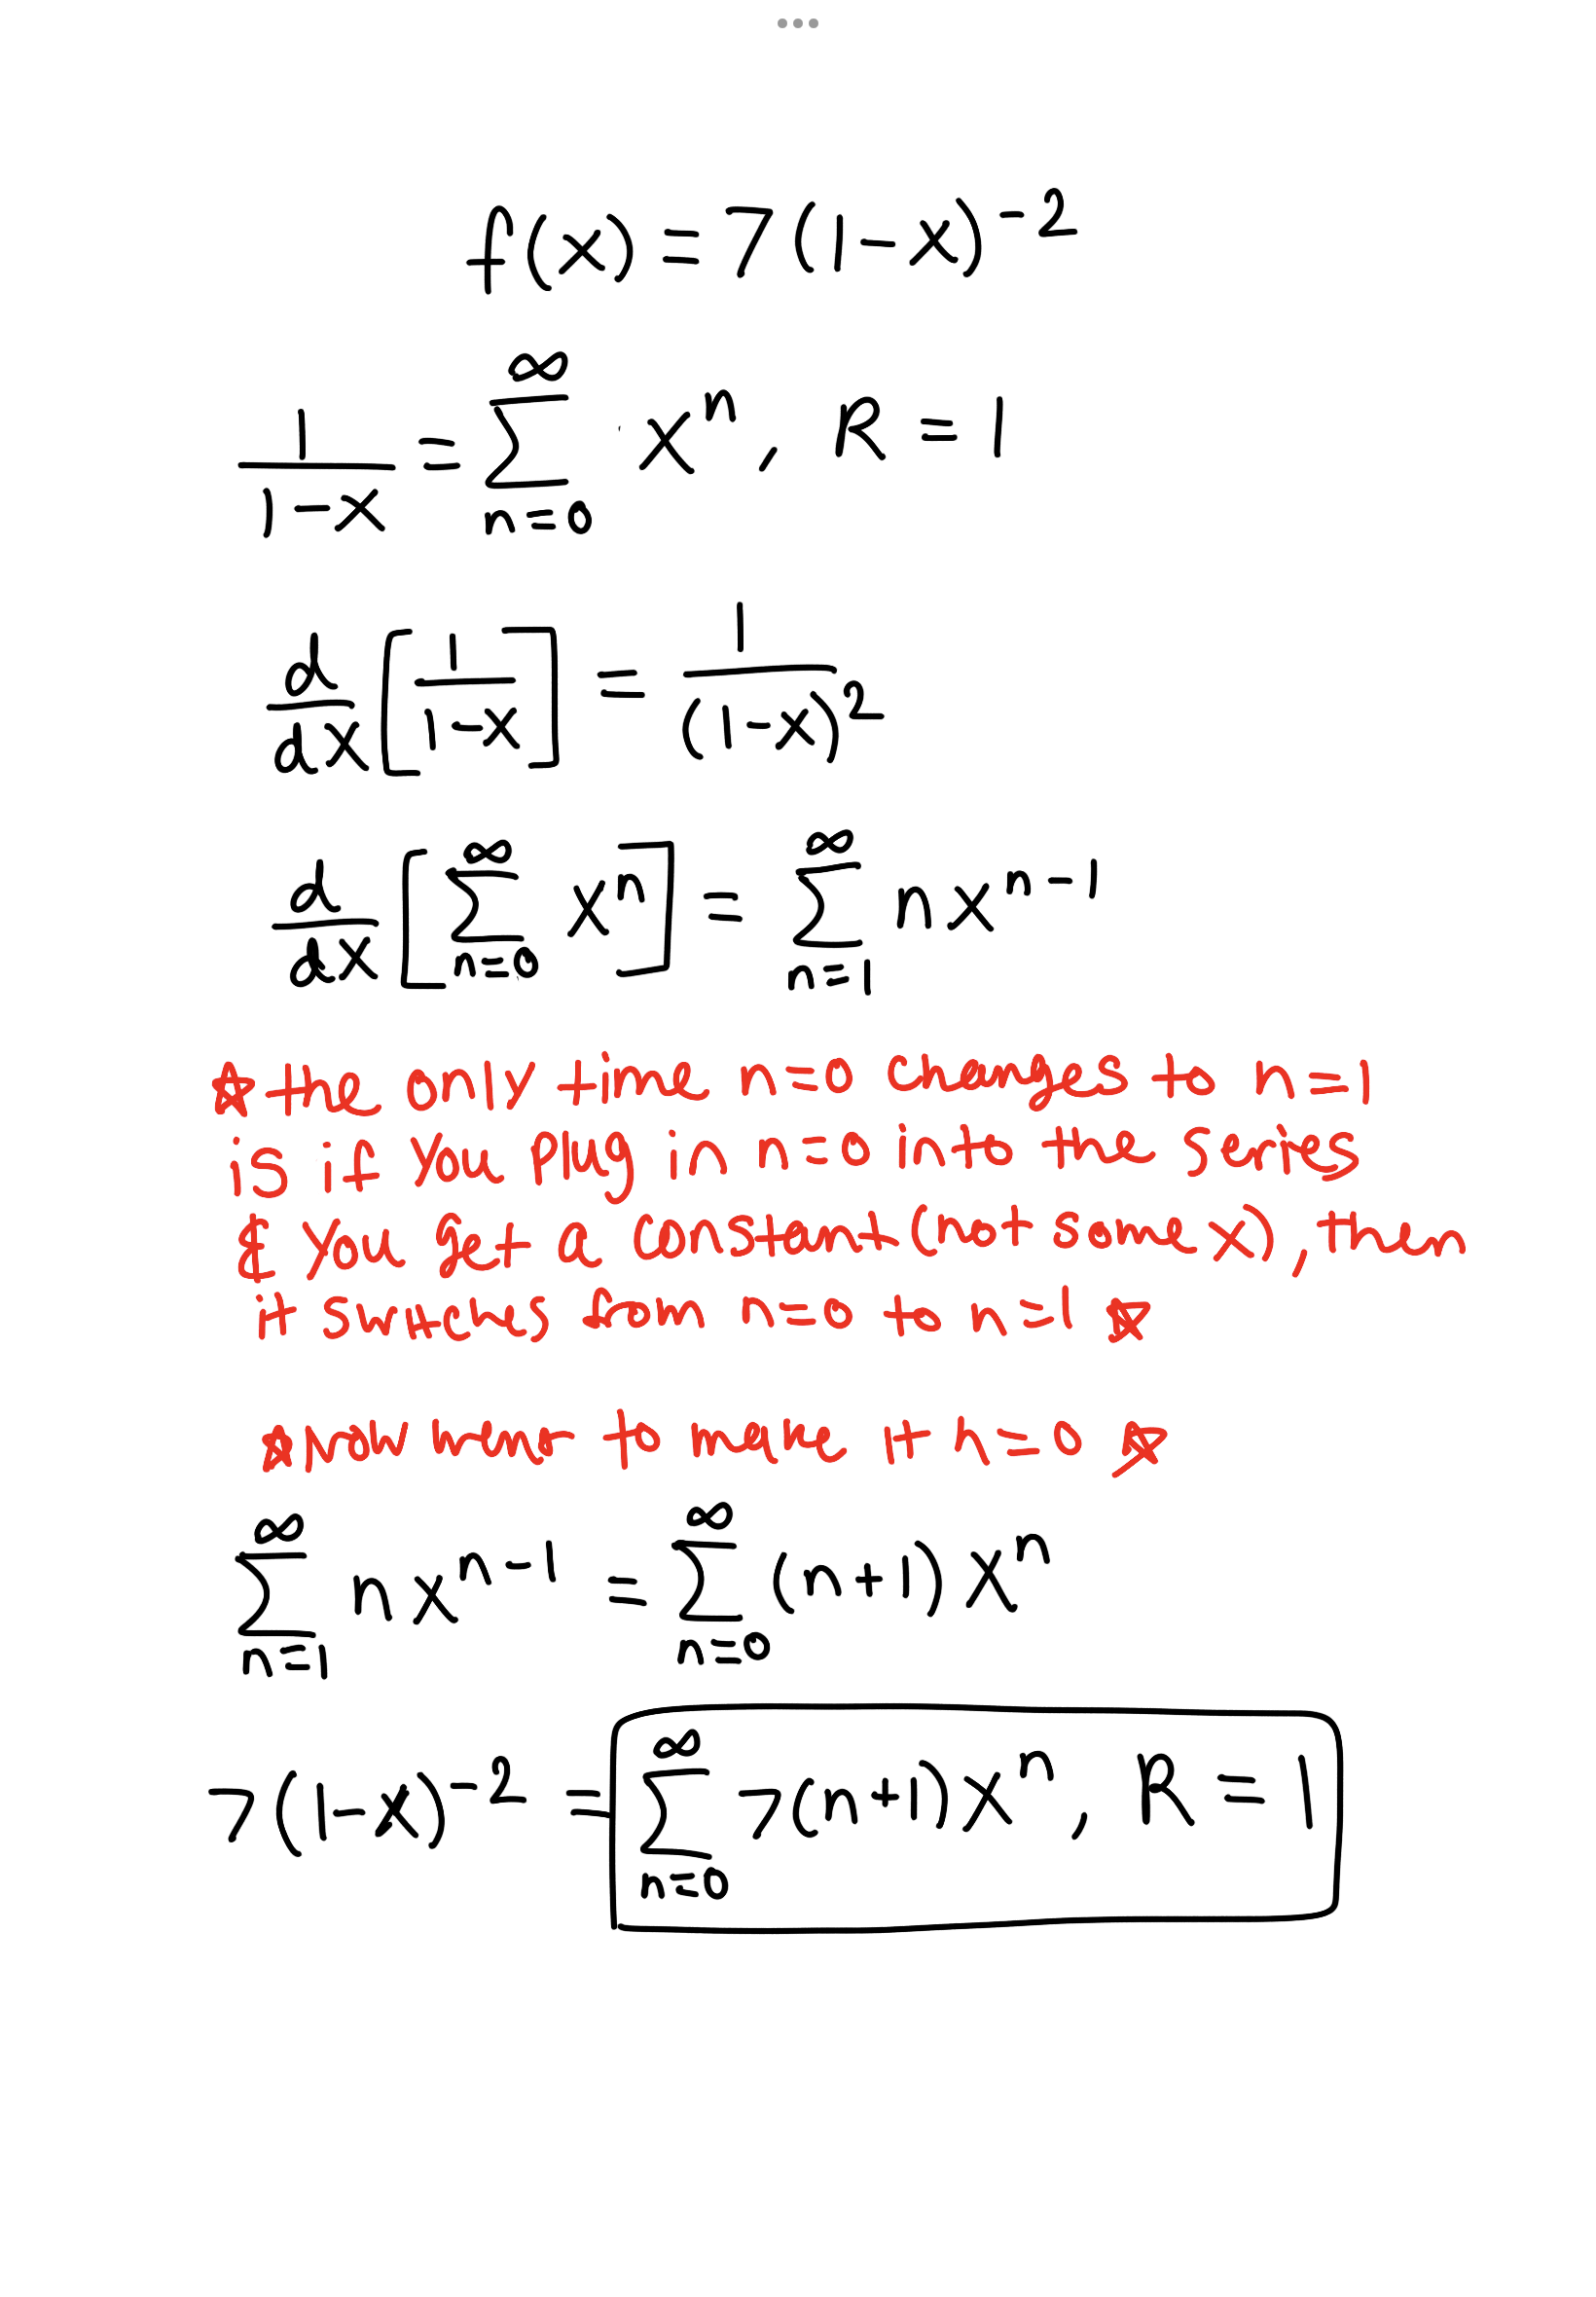 f(x) = 7(1-x)^-2
1/(1-x) = ∑_{n=0}^∞ x^n, R = 1
d/dx [1/(1-x)] = 1/(1-x)^2
d/dx [∑_{n=0}^∞ x^n] = ∑_{n=1}^∞ nx^{n-1}
☆ the only time n=0 changes to n=1
is if you plug in n=0 into the series
& you get a constant (not some x), then
it switches from n=0 to n=1 ☆
☆ now to make it n=0 ☆
∑_{n=1}^∞ nx^{n-1} = ∑_{n=0}^∞ (n+1)x^n
7(1-x)^-2 = ∑_{n=0}^∞ 7(n+1)x^n, R = 1